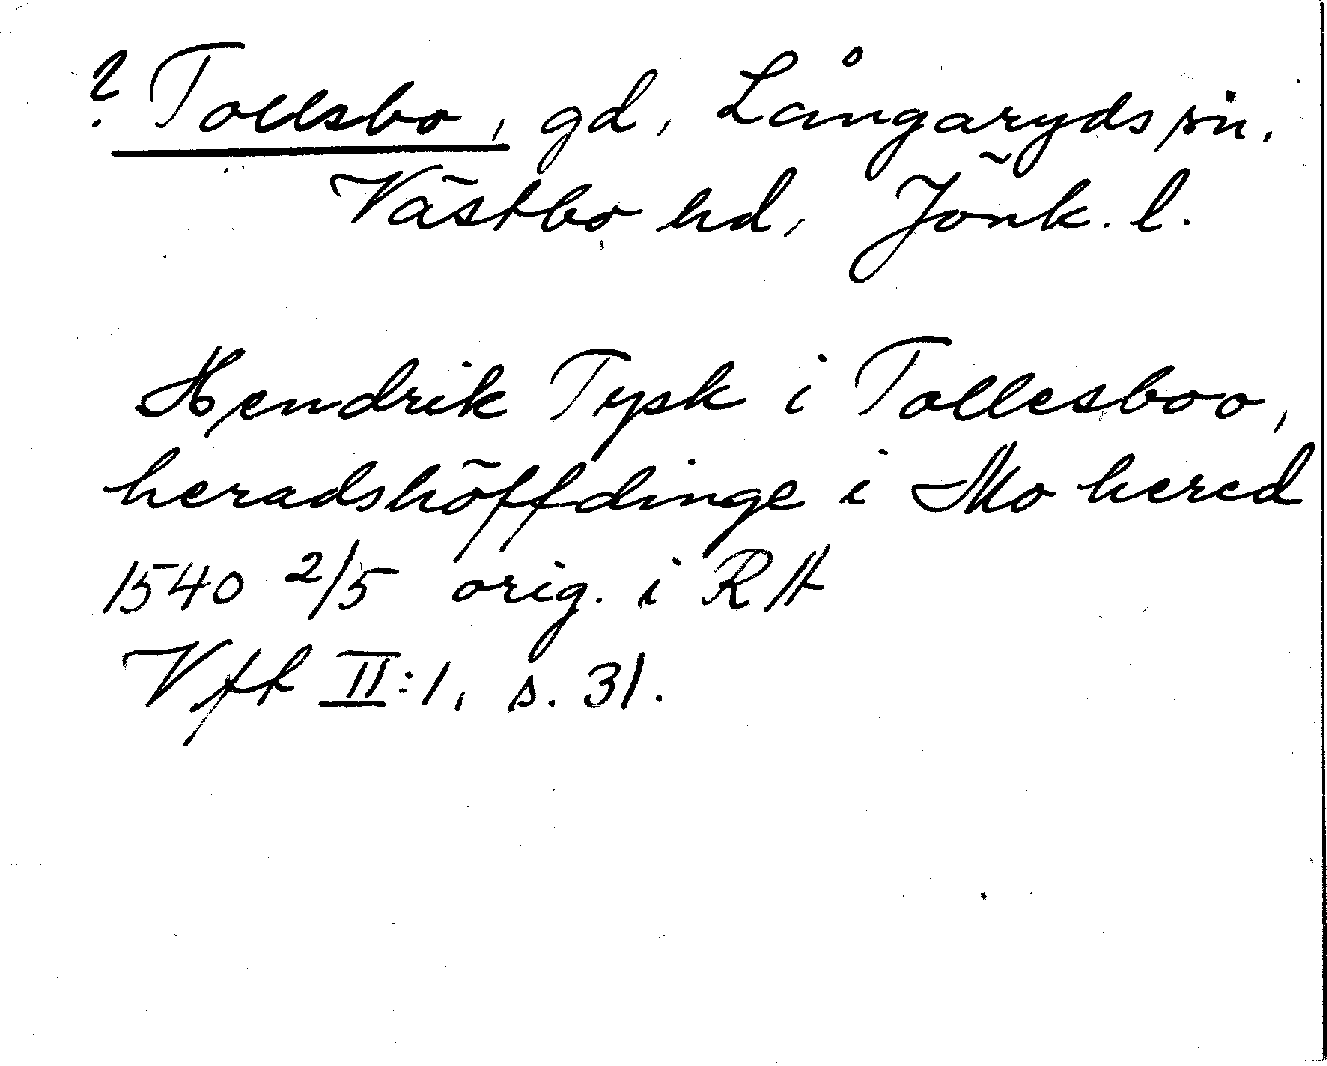 ? Tollsbo, gd, Långaryds sn.
Västbo hd, Jönk. l.
Hendrik Tysk i Tollesboo,
heradshöffdinge i Mo hered
1540 2/5 orig. i RA
Vfh II:1, s. 31.